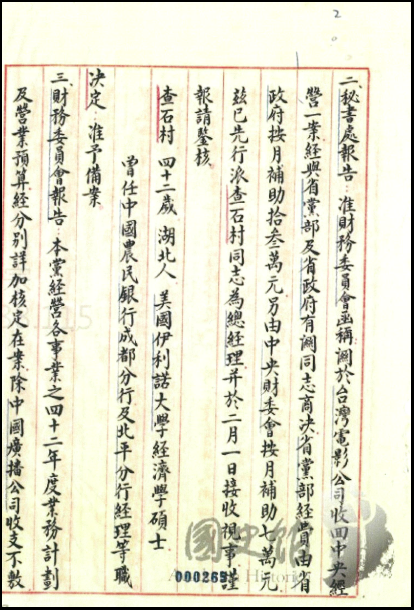 二、秘書處報告：准財務委員會函稱關於台灣電影公司收回中央經
營一案經與省黨部及省政府有關同志商決省黨部經費由省
政府按月補助拾叁萬元另由中央財委會按月補助七萬元
茲已先行派查石村同志為總經理并於二月一日接收視事謹
報請鑒核
查石村 四十二歲 湖北人 美國伊利諾大學經濟學碩士
曾任中國農民銀行成都分行及北平分行經理等職
決定：准予備案
三、財務委員會報告：本黨經營各事業之四十二年度業務計劃
及營業預算經分別詳加核定在業除中國廣播公司收支不敷
2
國史館
000269